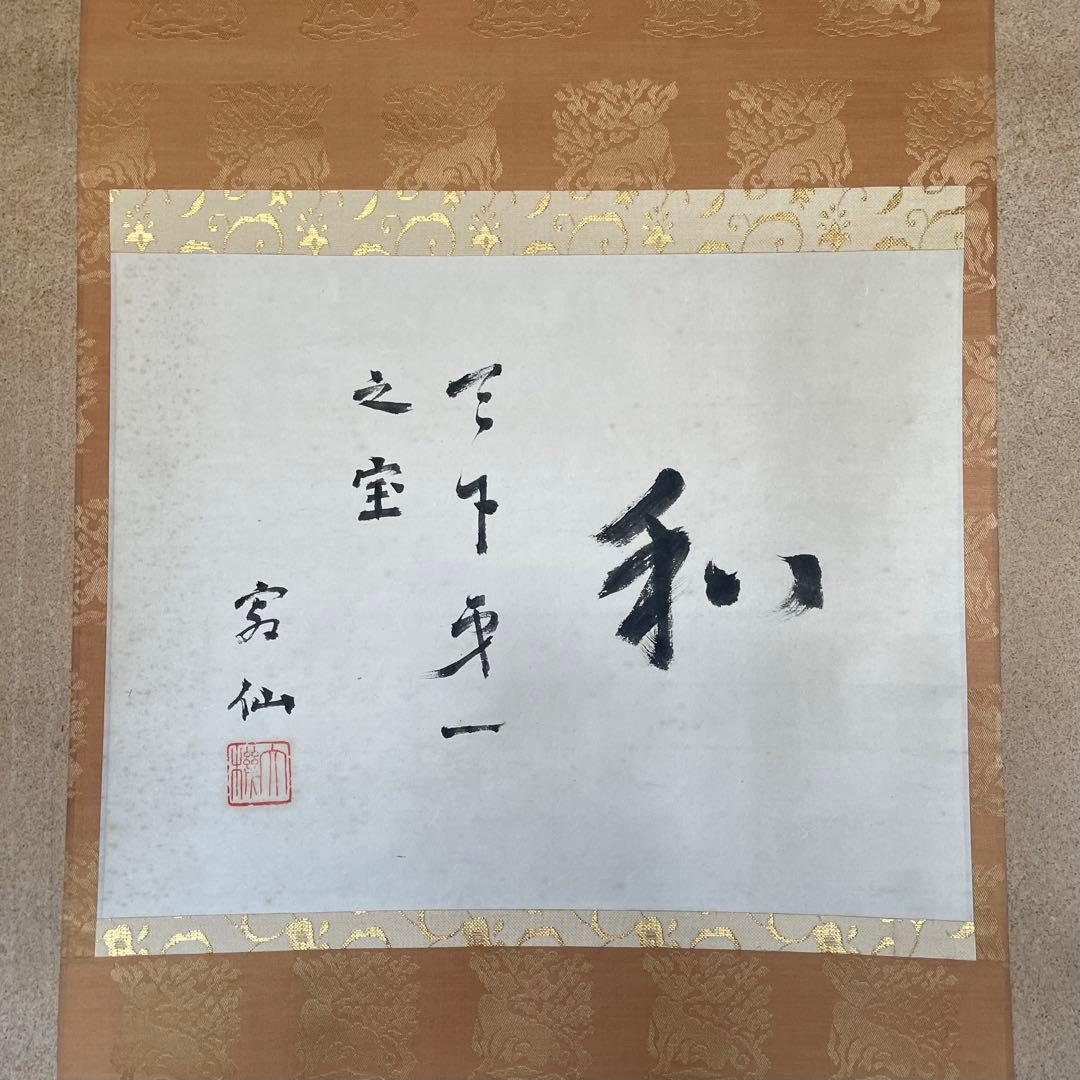 和
天下第一
之宝
宗仙
大機